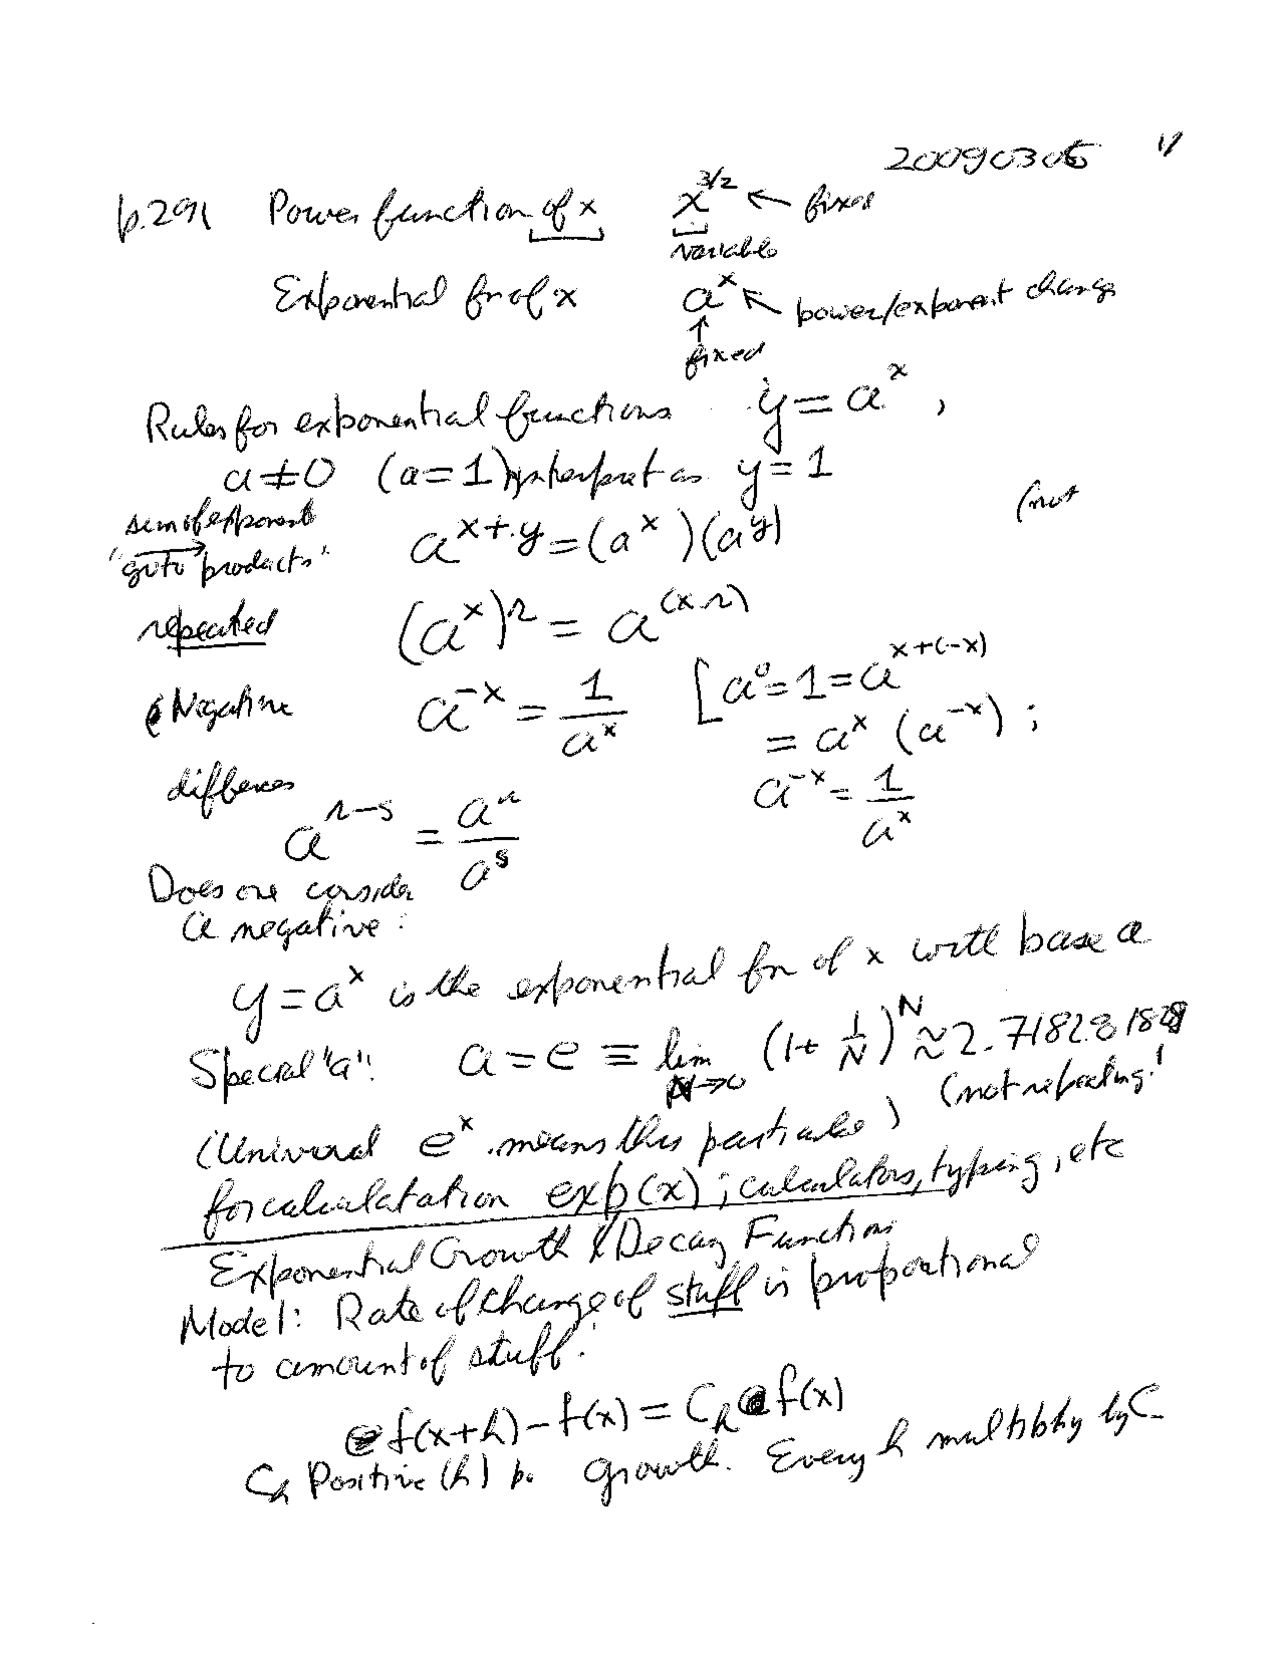 20090305 1/
p.291 Power function of x x^{3/2} ← fixed
variable
Exponential fn of x a^x ← power/exponent change
↑
fixed
Rules for exponential functions y = a^x ,
a ≠ 0 (a = 1) interpret as y = 1
(not
sum of exponent a^{x+y} = (a^x)(a^y)
"go to products"
repeated (a^x)^r = a^{(x·r)}
Negative a^{-x} = 1/a^x [a^0 = 1 = a^{x+(-x)}
= a^x (a^{-x}) ;
differences a^{-x} = 1/a^x
a^{r-s} = a^r/a^s
Does one consider
a negative :
y = a^x is the exponential fn of x with base a
Special "a": a = e ≡ lim_{N→0} (1 + 1/N)^N ≈ 2.718281828
(not repeating!
(Universal e^x means this particular)
for calculatation exp(x) ; calculators, typing, etc
Exponential Growth & Decay Function
Model: Rate of change of stuff is proportional
to amount of stuff.
f(x+h) - f(x) = C_h f(x)
C_h Positive (h) growth. Every h multiply by C